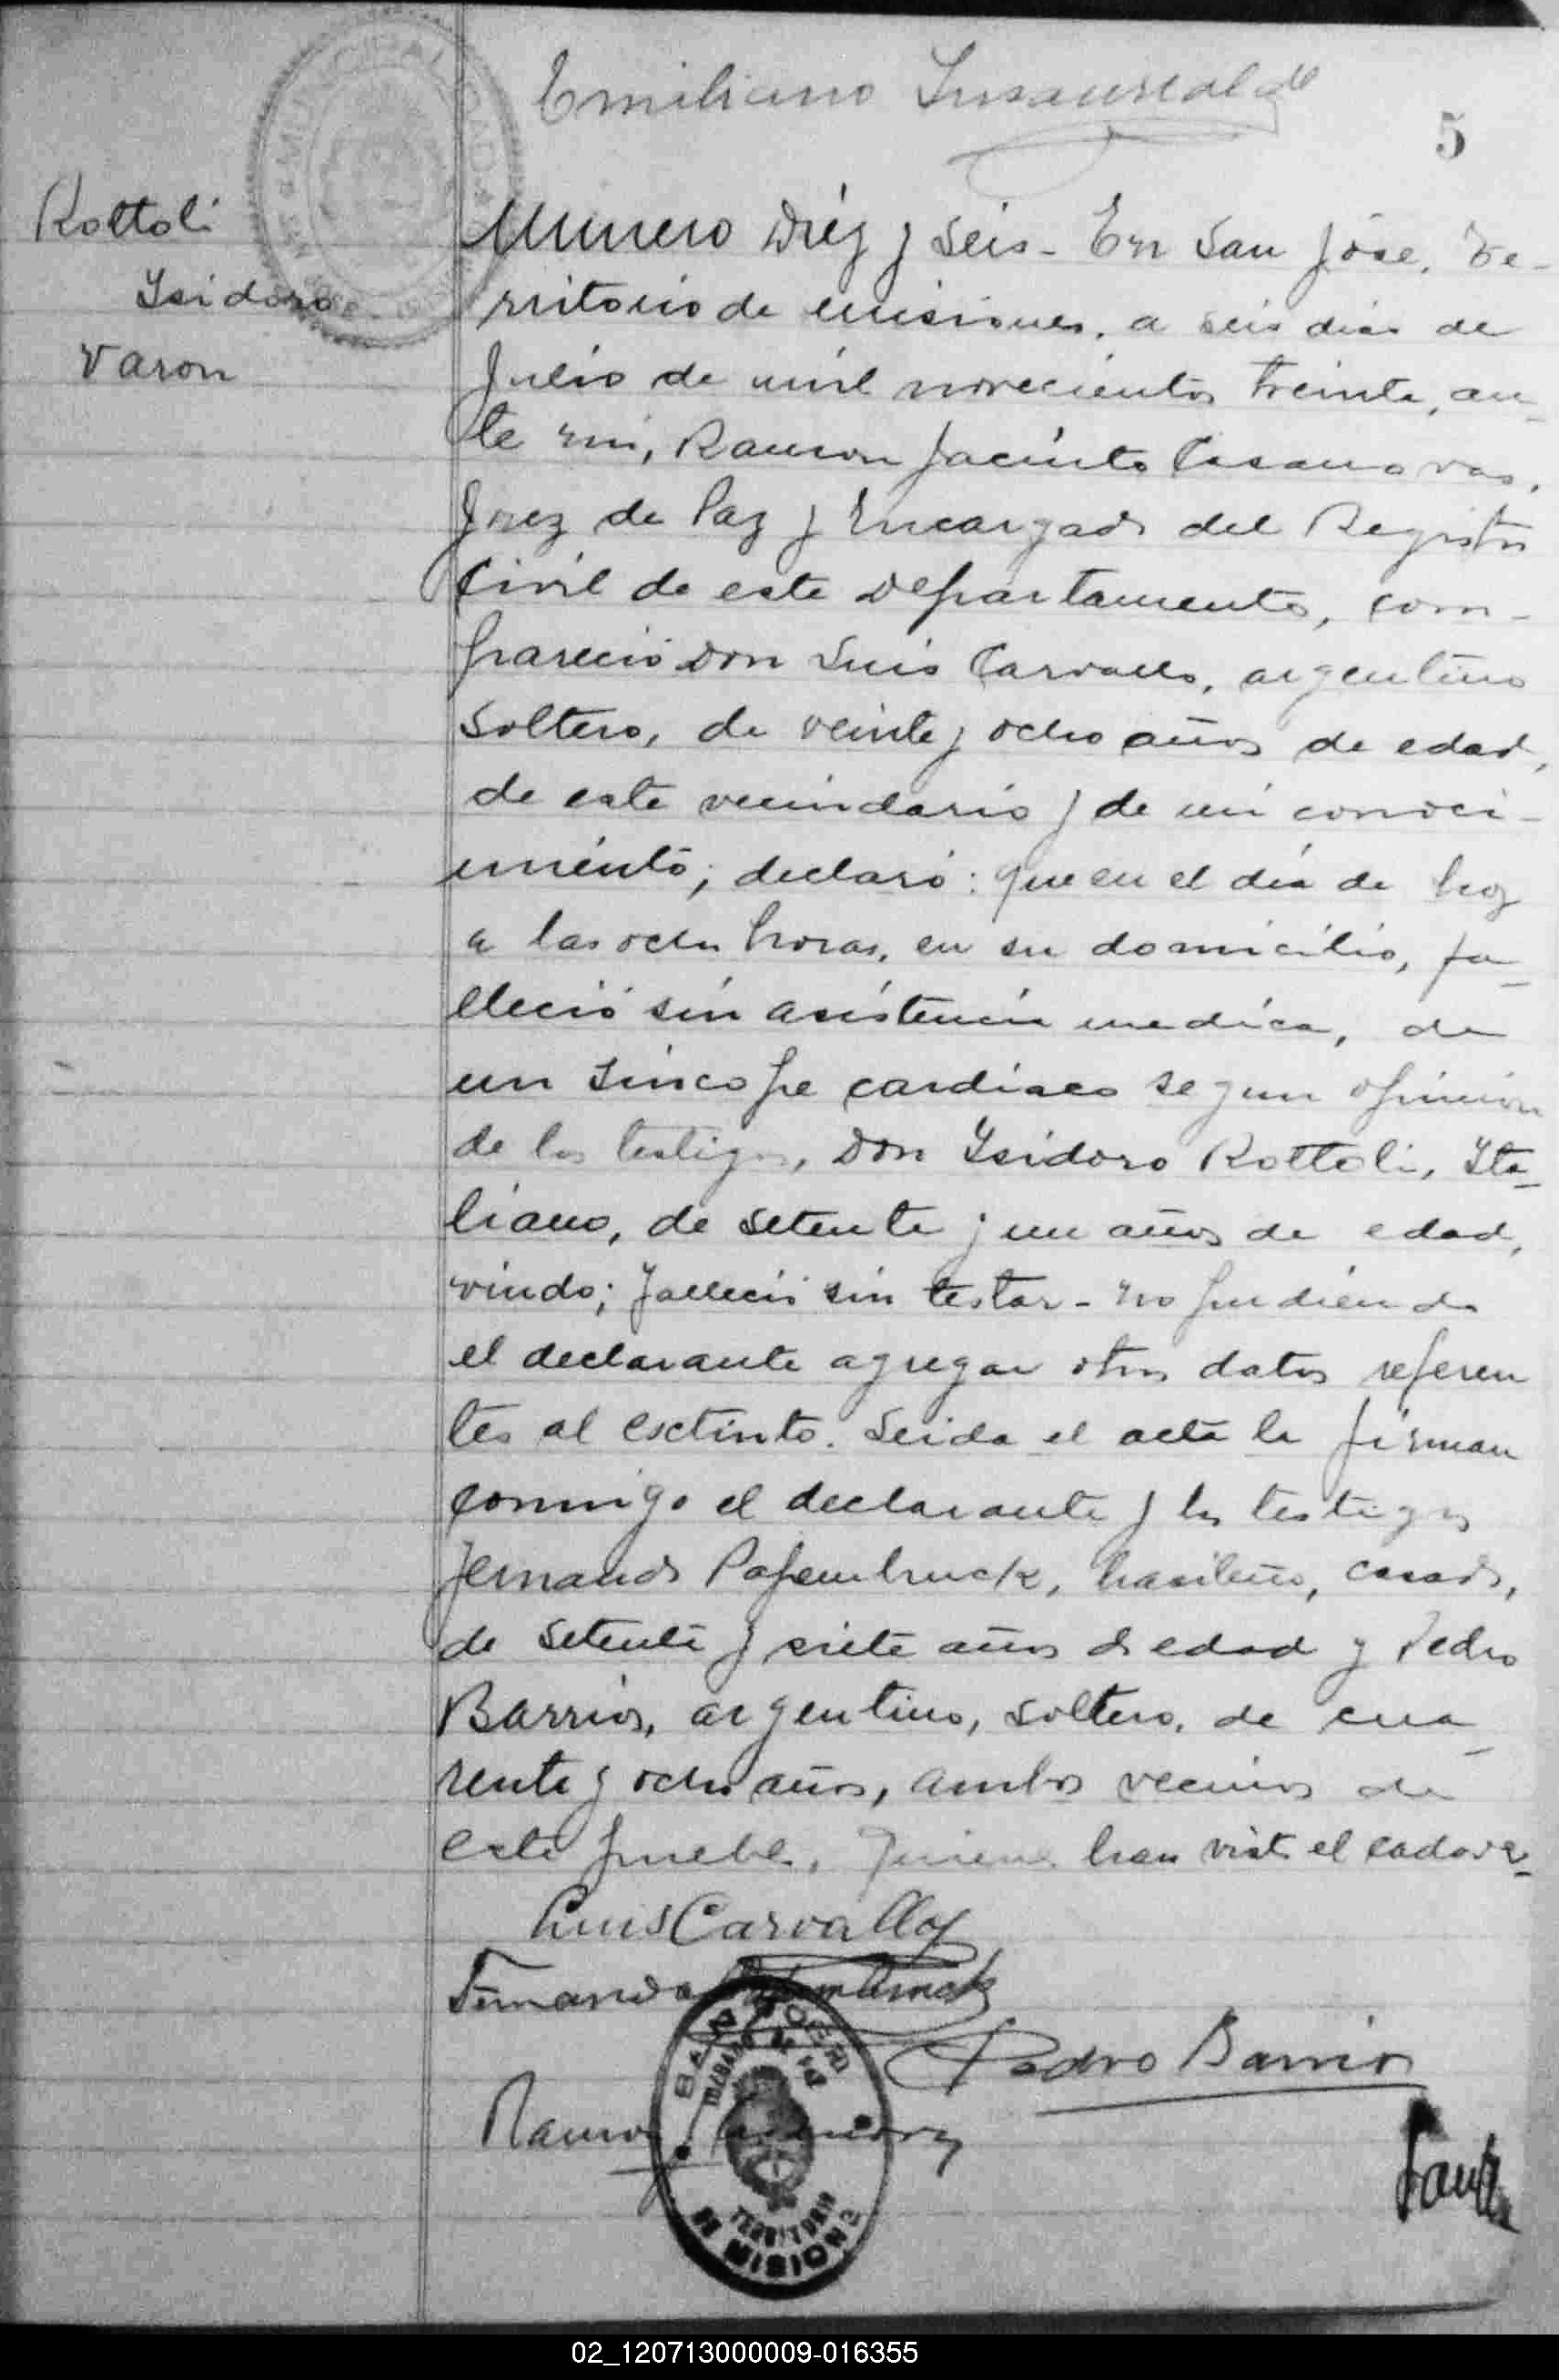 Emiliano Insaurralde
5
Rottoli
Isidoro
Varon
Numero Diez y Seis - En San José, Te-
rritorio de Misiones, a seis dias de
Julio de mil novecientos treinta, an-
te mi, Ramon Jacinto Casanovas,
Juez de Paz y Encargado del Registro
Civil de este Departamento, com-
pareció Don Luis Carvallo, argentino
Soltero, de veinte y ocho años de edad,
de este vecindario y de mi conoci-
miento; declaró: que en el dia de hoy
a las ocho horas, en su domicilio, fa-
lleció sin asistencia medica, de
un sincope cardiaco segun opinion
de los testigos, Don Isidoro Rottoli, Ita-
liano, de setenta y un años de edad,
viudo; falleció sin testar - no pudiendo
el declarante agregar otros datos referen
tes al esctinto. Leida el acta la firman
conmigo el declarante y los testigos
Fernando Papembruck, brasileño, casado,
de setenta y siete años de edad y Pedro
Barrios, argentino, soltero, de cua-
renta y ocho años, ambos vecinos de
este pueblo, quienes han visto el cadaver-
Luis Carvallo
Fernando Papembruck
Pedro Barrios
Ramon Casanovas
TERRITORIO
DE MISIONES
02_120713000009-016355